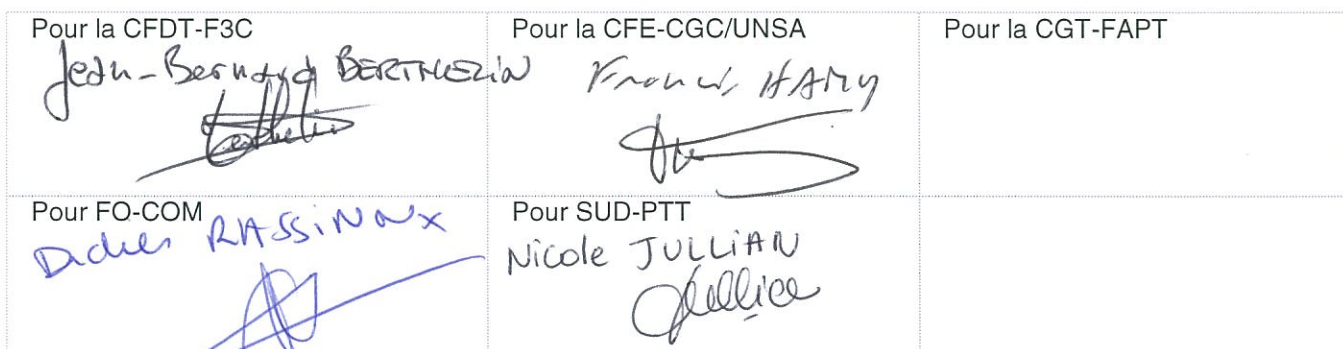 Pour la CFDT-F3C
Jean-Bernard BERTHEZIN
Pour la CFE-CGC/UNSA
Francis HAMY
Pour la CGT-FAPT
Pour FO-COM
Didier RASSINOUX
Pour SUD-PTT
Nicole JULLIAN